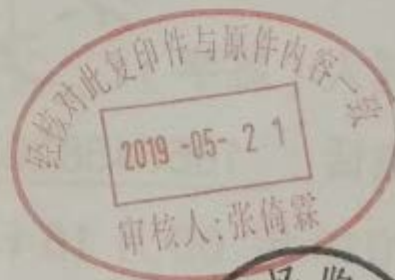 经核对此复印件与原件内容一致
2019-05-21
审核人:张倚霖